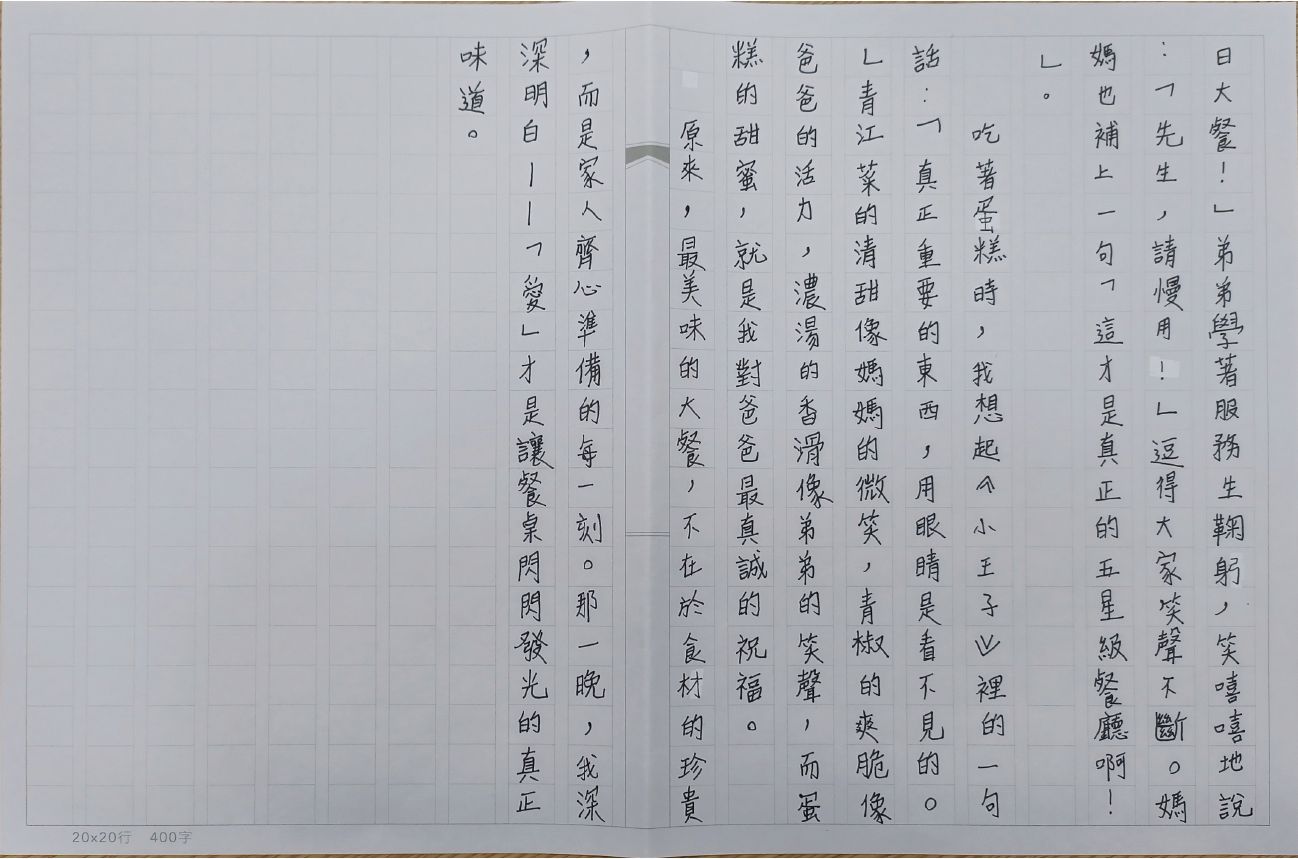 日大餐！」弟弟學著服務生鞠躬，笑嘻嘻地說
：「先生，請慢用！」逗得大家笑聲不斷。媽
媽也補上一句「這才是真正的五星級餐廳啊！
」。
吃著蛋糕時，我想起《小王子》裡的一句
話：「真正重要的東西，用眼睛是看不見的。
」青江菜的清甜像媽媽的微笑，青椒的爽脆像
爸爸的活力，濃湯的香滑像弟弟的笑聲，而蛋
糕的甜蜜，就是我對爸爸最真誠的祝福。
原來，最美味的大餐，不在於食材的珍貴
，而是家人齊心準備的每一刻。那一晚，我深
深明白——「愛」才是讓餐桌閃閃發光的真正
味道。
20x20行 400字